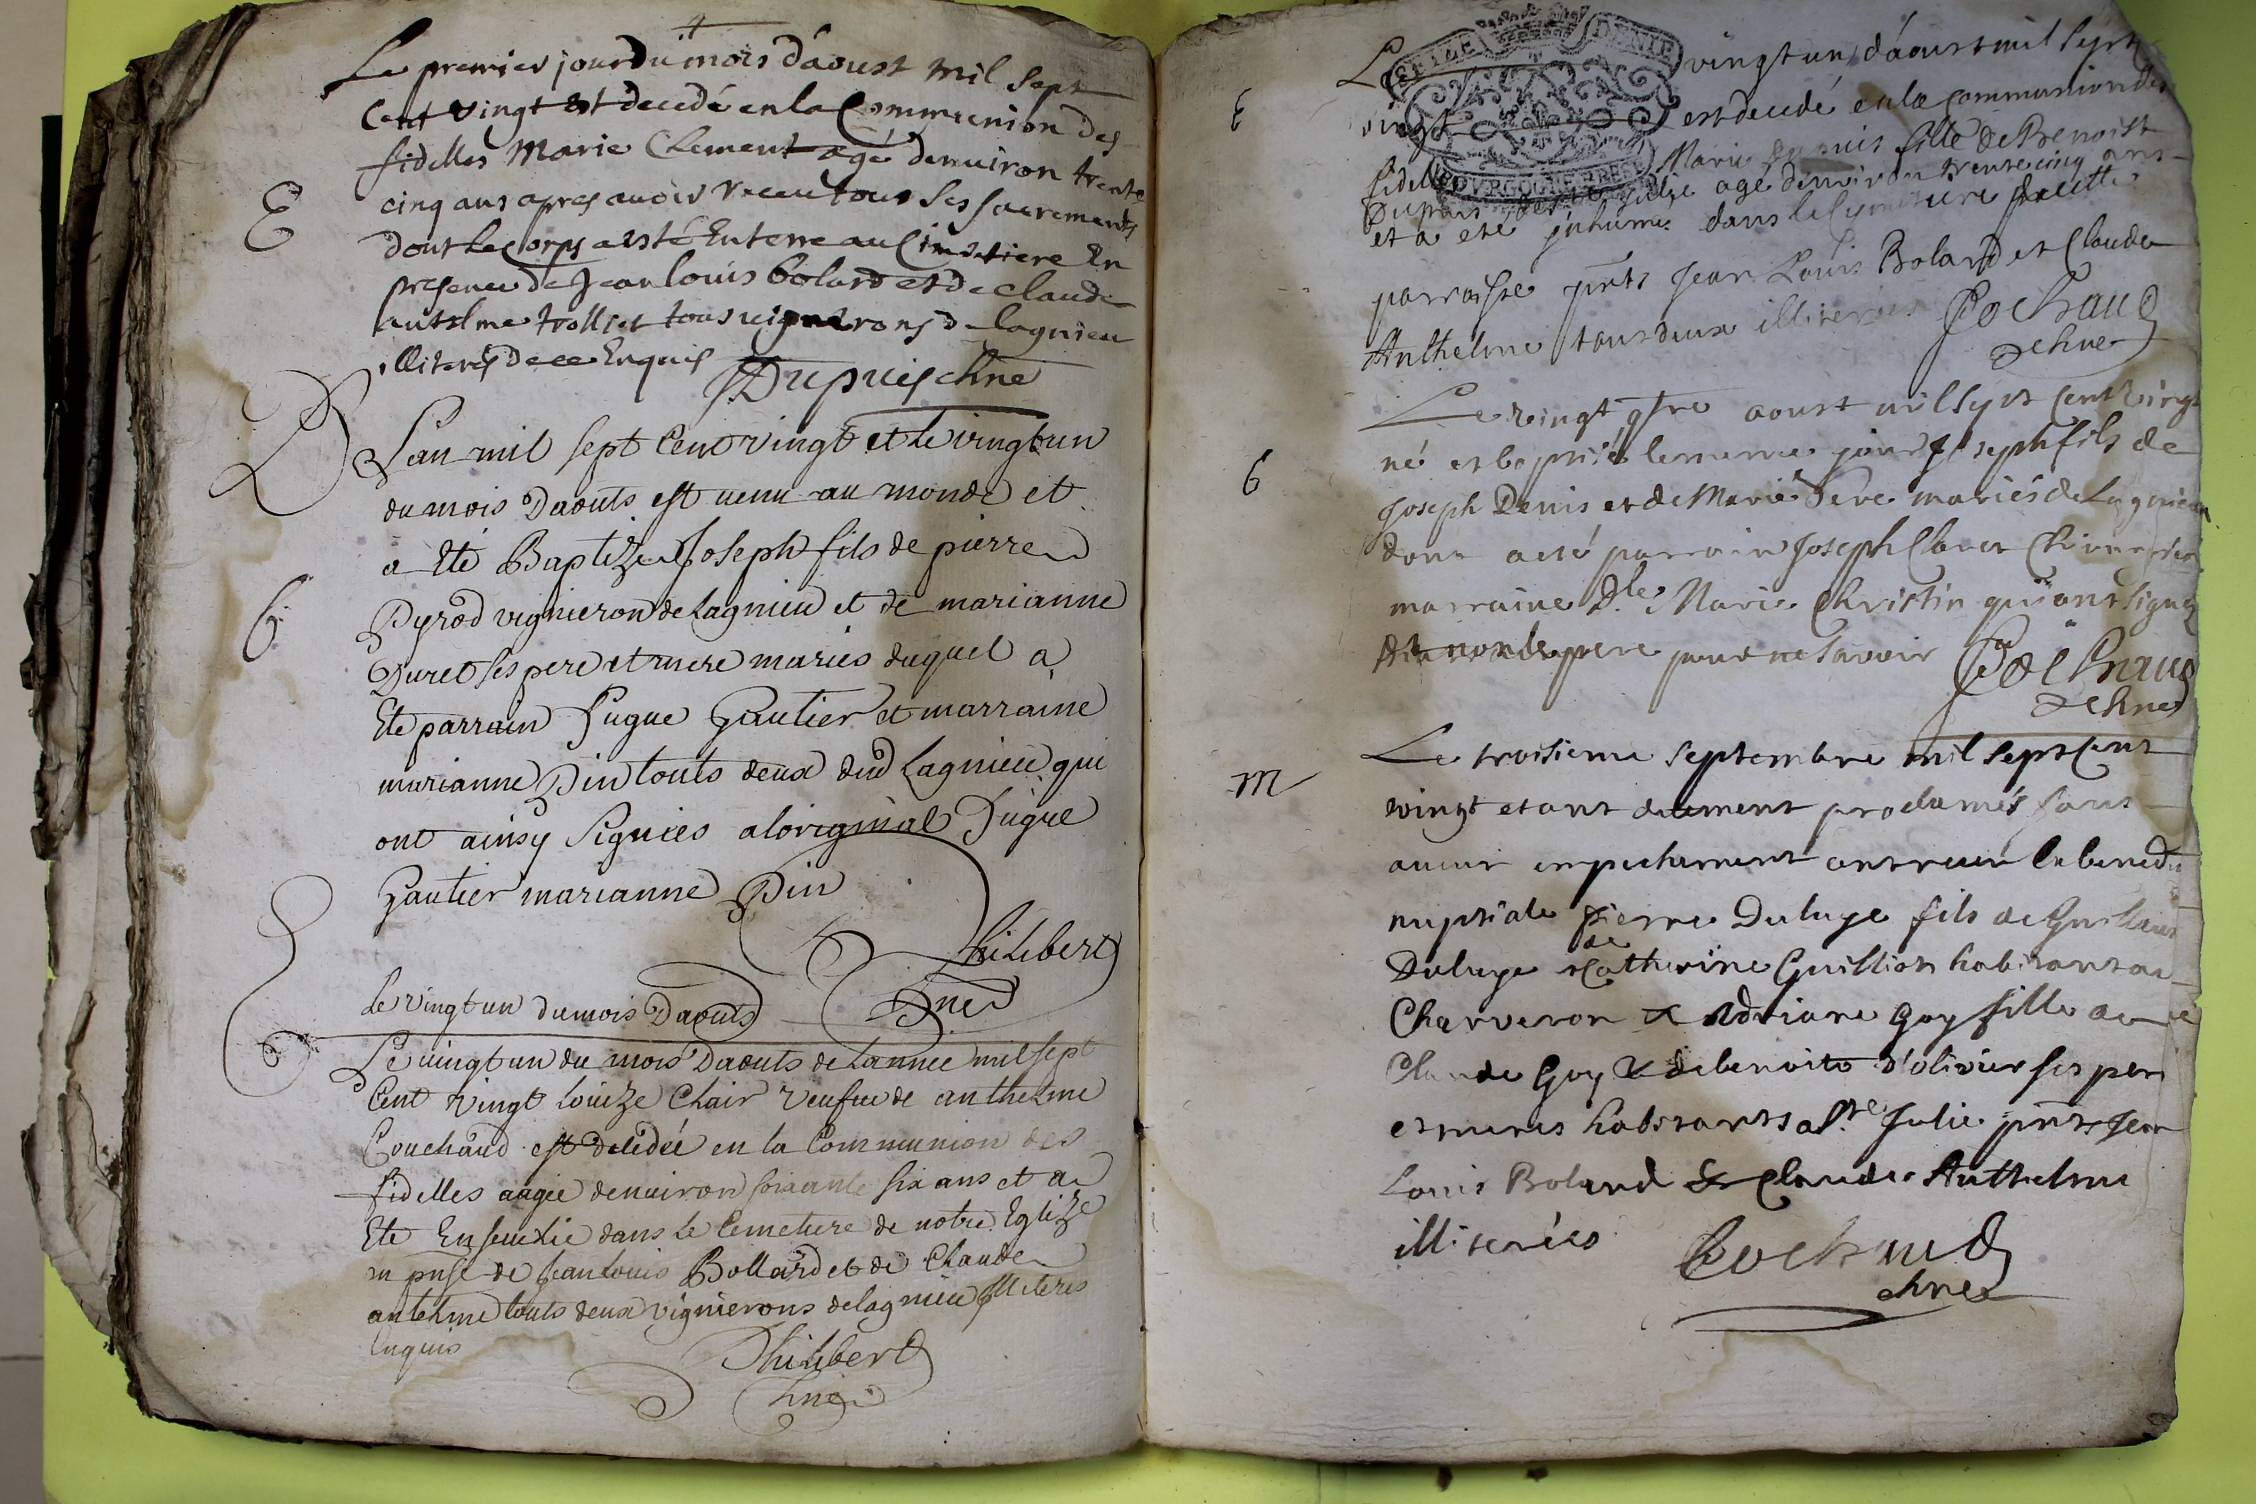 Le premier jour du mois d'aoust mil sept
Cent vingt Est decedé en la Communion des
fidelles Marie Clement agé denuiron trente
E
cinq ans apres auoir receu tous ses sacrements
dont le Corps a esté Enterre au Cimetiere En
presence de Jean louis bolard et de claude
antelme trolliet tous uignerons de lagnieu
illiterés de ce Enquis
Dupuis chne
L'an mil sept Cent vingt et le vingt un
du mois Daouts est uenu au monde et
a Ete Baptize Joseph fils de pierre
B
Pyrod vignieron de Lagnieu et de marianne
Duret ses pere et mere mariés duquel a
Ete parrain Hugue Gautier et marraine
marianne Pin touts deux dud Lagnieu qui
ont ainsy Signiés a loriginal Hugue
Gautier marianne Pin
Philibert
Chne
le vingt un du mois Daouts
Le uingt un du mois Daouts de Lannee mil sept
Cent vingt Louize Clair Veufue de anthelme
Couchaud est décédée en la Communion des
fidelles aagée denuiron soixante six ans et a
Ete Enseuelie dans le Cemetiere de notre Eglize
en pnse de Jean Louis Bollard et de Claude
antelme touts deux vignierons de lagnieu illiteres
Enquis
Philibert
Chne
Le vingt un d'aoust mil sept
E
vingt est decedé en la communion des
fidelles Marie Dupuis fille de Benoist
Dupuis agé denviron trente cinq ans
et a eté inhumé dans le Cymetiere de cette
parroisse pnts Jean Louis Bolard et Claude
Anthelme tous deux illiterés Cochaud
chne
Le vingt qtre aoust mil sept cent vingt
né et baptisé le meme jour Joseph fils de
6
Joseph Denis et de Marie Seve mariés de Lagnieu
dont a eté parrain Joseph Claret
marraine Dle Marie Christin qui ont signé
et non le pere pour ne savoir Cochaud
chne
Le troisieme septembre mil sept cent
M
vingt etant duement proclamés sans
aucun empechement ont receu la benedon
nuptiale pierre Deluge fils de Guillaume
Deluge & de Catherine Guilliot habitants a
Charveron & Adriane Goy fille de
Claude Goy & de benoite d'olivier ses pere
et meres habitants a Ste Julie pnts Jean
Louis Bolard & Claude Anthelme
illiterées
Cochaud
chne